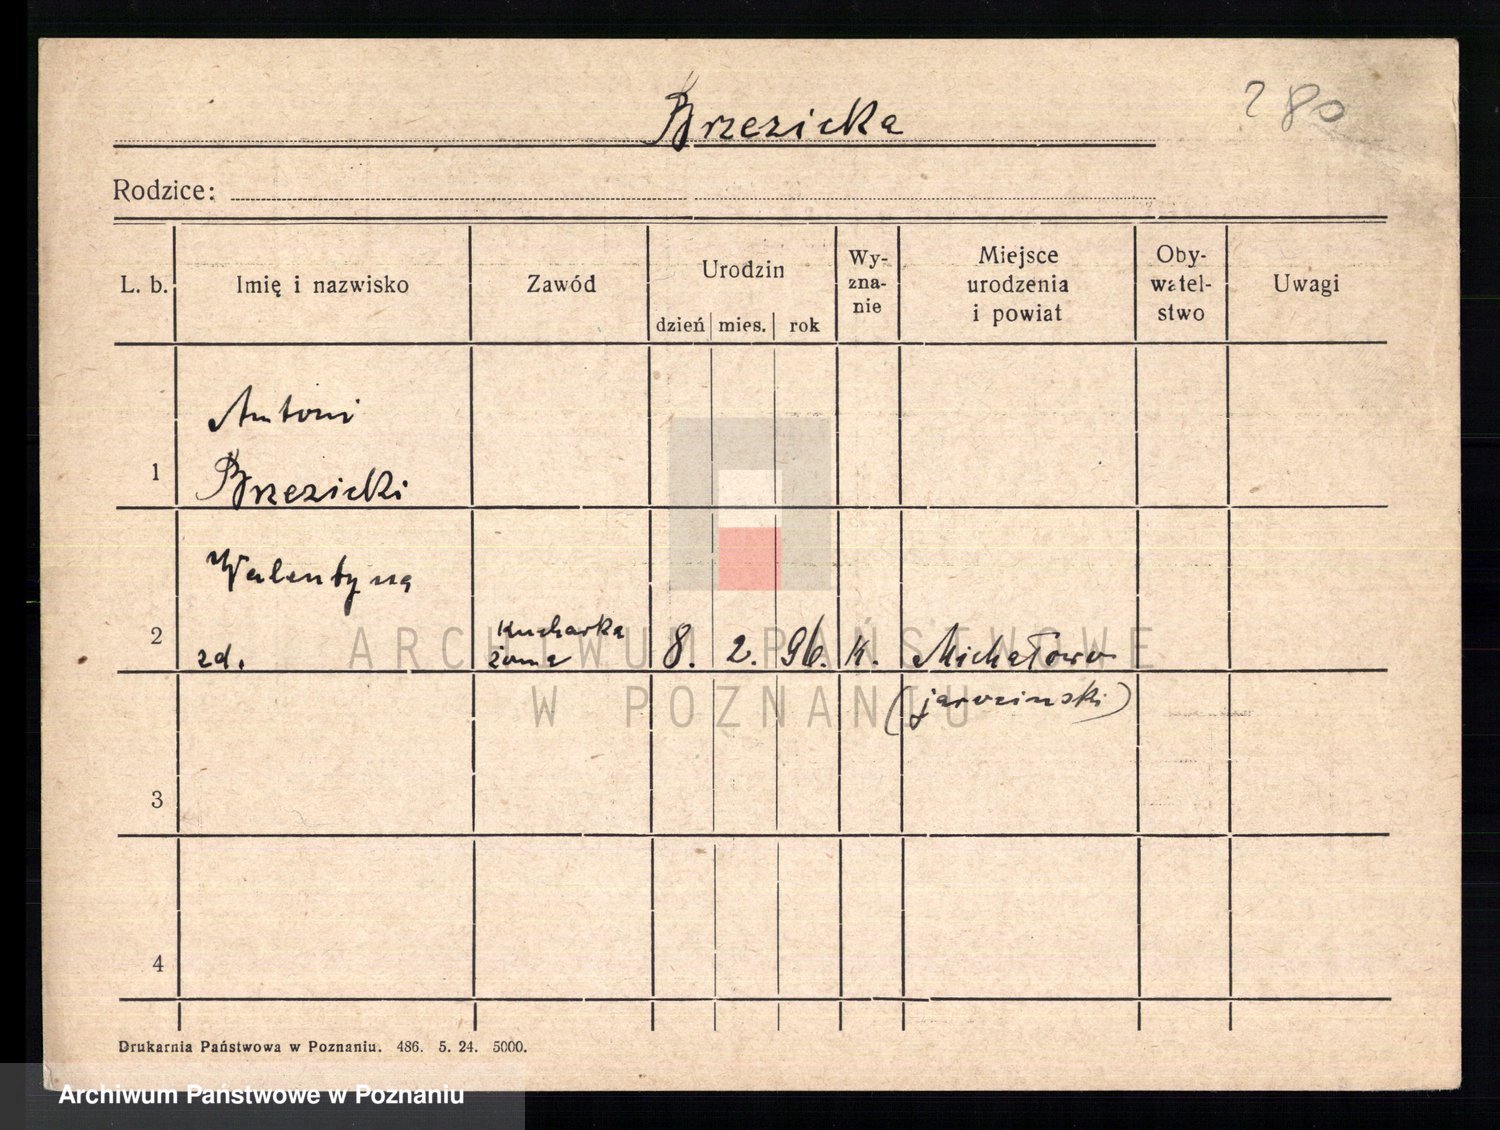 Brzezicka
280
Rodzice:
L. b. Imię i nazwisko Zawód Urodzin dzień mies. rok Wy-zna-nie Miejsce urodzenia i powiat Oby-watel-stwo Uwagi
Antoni
1 Brzezicki
Walentyna
2 zd. Kucharka żona 8. 2. 96. K. Michałowo
(jarociński)
3
4
Drukarnia Państwowa w Poznaniu. 486. 5. 24. 5000.
ARCHIWUM PAŃSTWOWE
W POZNANIU
Archiwum Państwowe w Poznaniu